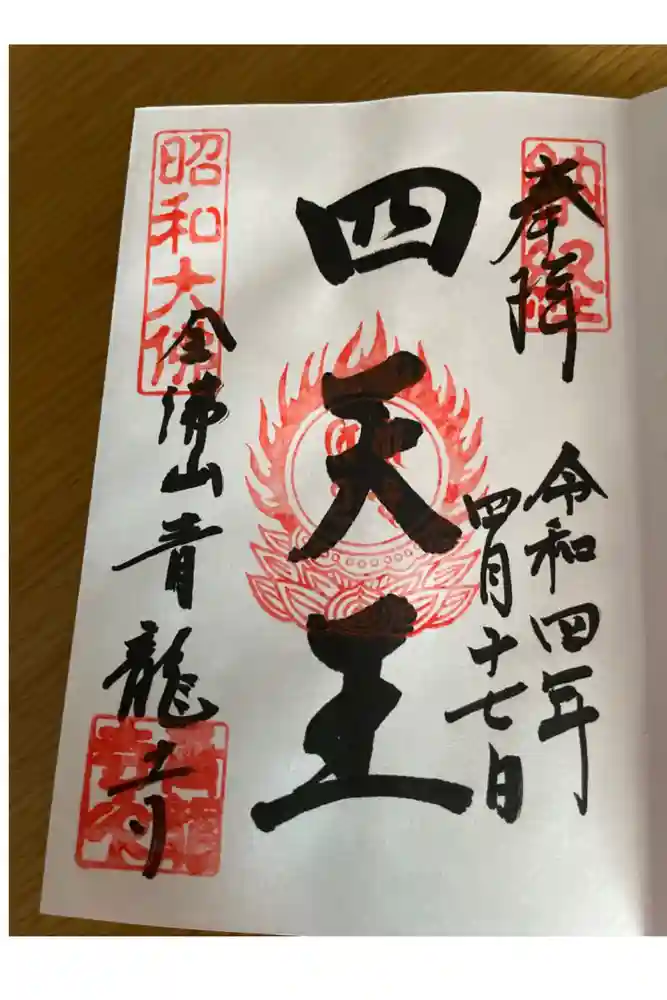 奉拝
納経
令和四年
四月十七日
四天王
昭和大佛
全佛山青龍寺